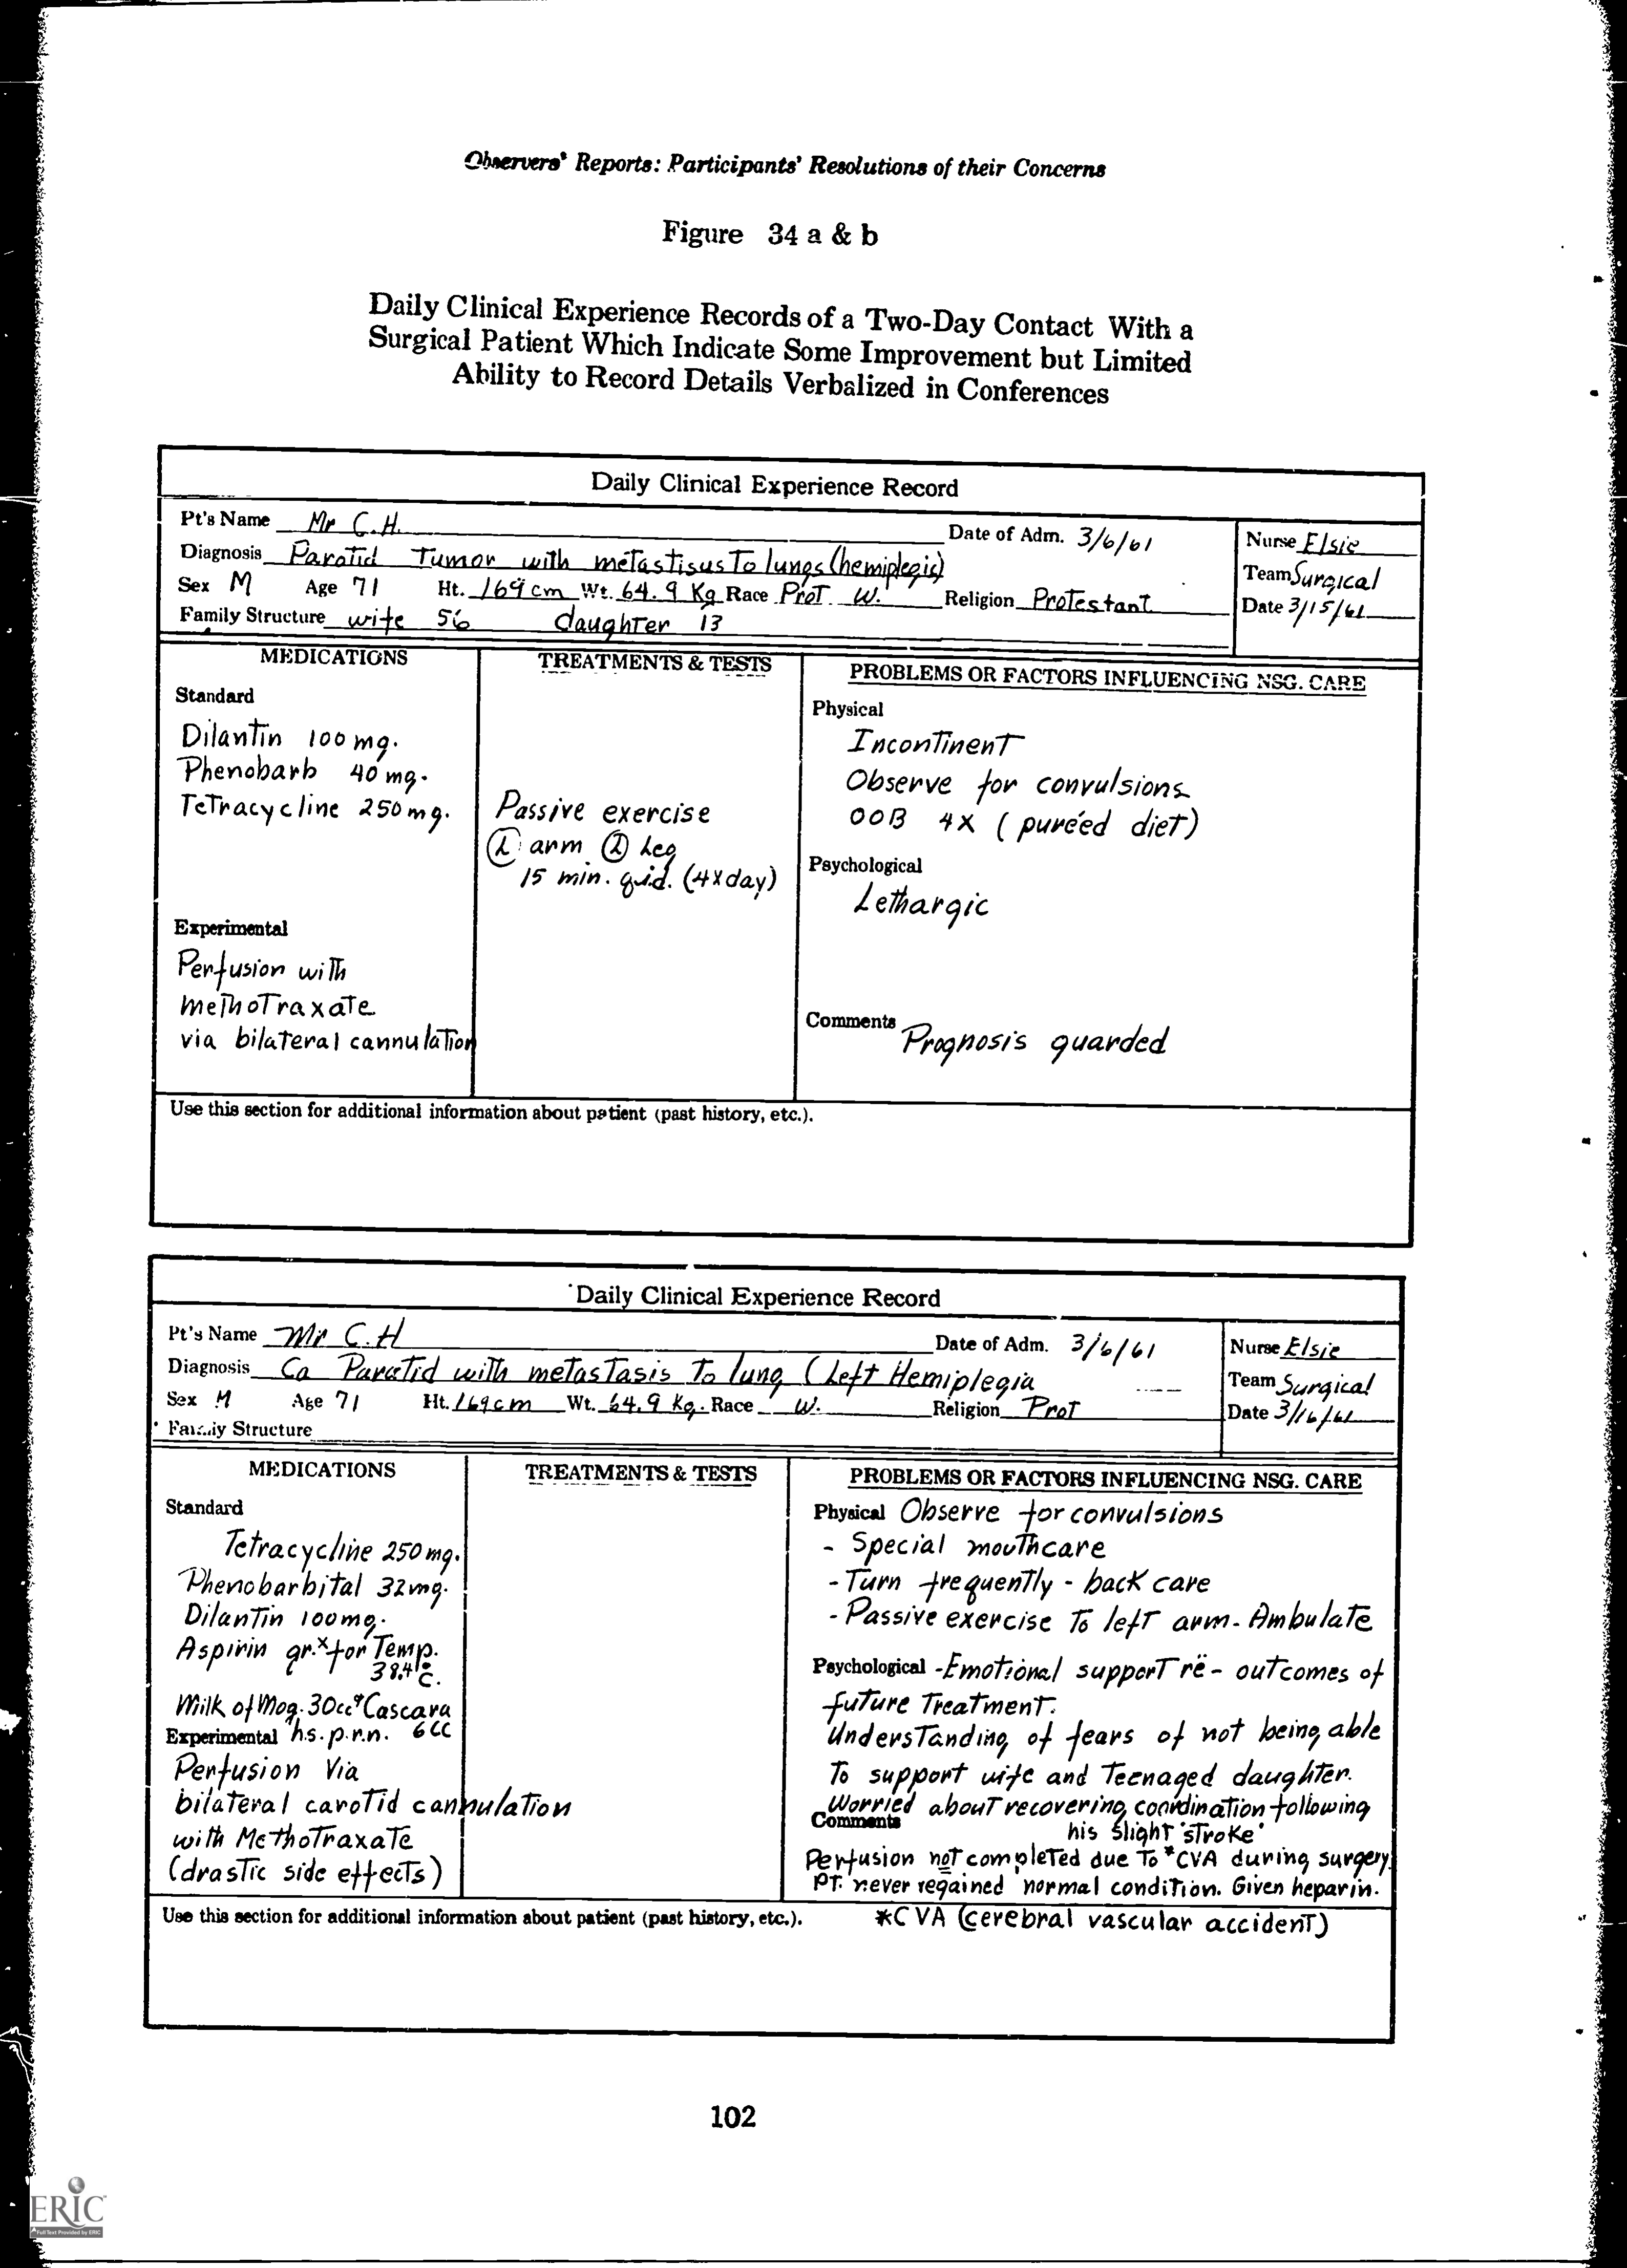 Observers' Reports: Participants' Resolutions of their Concerns
Figure 34 a & b
Daily Clinical Experience Records of a Two-Day Contact With a
Surgical Patient Which Indicate Some Improvement but Limited
Ability to Record Details Verbalized in Conferences
Daily Clinical Experience Record
Pt's Name Mr C.H. Date of Adm. 3/6/61 Nurse Elsie
Diagnosis Parotid Tumor with metastisus To lungs (hemiplegic) Team Surgical
Sex M Age 71 Ht. 169 cm Wt. 64.9 Kg Race Prot. W. Religion Protestant Date 3/15/61
Family Structure wife 56 daughter 13
MEDICATIONS TREATMENTS & TESTS PROBLEMS OR FACTORS INFLUENCING NSG. CARE
Standard
Dilantin 100 mg.
Phenobarb 40 mg.
Tetracycline 250 mg.
Experimental
Perfusion with
methotraxate
via bilateral cannulation
Passive exercise
(L) arm (L) Leg
15 min. q.i.d. (4x day)
Physical
Incontinent
Observe for convulsions
OOB 4X (pureéd diet)
Psychological
Lethargic
Comments Prognosis guarded
Use this section for additional information about patient (past history, etc.).
Daily Clinical Experience Record
Pt's Name Mr C.H Date of Adm. 3/6/61 Nurse Elsie
Diagnosis Ca Parotid with metastasis To lung (Left Hemiplegia Team Surgical
Sex M Age 71 Ht. 169 cm Wt. 64.9 Kg. Race W. Religion Prot Date 3/16/61
Family Structure
MEDICATIONS TREATMENTS & TESTS PROBLEMS OR FACTORS INFLUENCING NSG. CARE
Standard
Tetracycline 250 mg.
Phenobarbital 32 mg.
Dilantin 100 mg.
Aspirin gr. x for Temp.
38.4° C.
Milk of Mag. 30cc Cascara
Experimental h.s. p.r.n. 6cc
Perfusion Via
bilateral carotid cannulation
with Methotraxate
(drastic side effects)
Physical Observe for convulsions
- Special mouthcare
- Turn frequently - back care
- Passive exercise To left arm - Ambulate
Psychological - Emotional support re - outcomes of
future Treatment.
Understanding of fears of not being able
To support wife and Teenaged daughter.
Worried about recovering coordination following
Comments his slight 'stroke'
Perfusion not completed due To *CVA during surgery.
PT. never regained normal condition. Given heparin.
Use this section for additional information about patient (past history, etc.). *CVA (cerebral vascular accident)
102
ERIC
Full Text Provided by ERIC